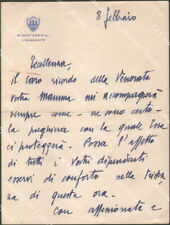 8 febbraio
Eccellenza,
il caro ricordo della Venerata
vostra Mamma mi accompagnerà
sempre come – ne sono certo –
la preghiera con la quale Essa
ci proteggerà. Possa l'affetto
di tutti i vostri dipendenti
esservi di conforto nella
di questa ora.
con affezionata e